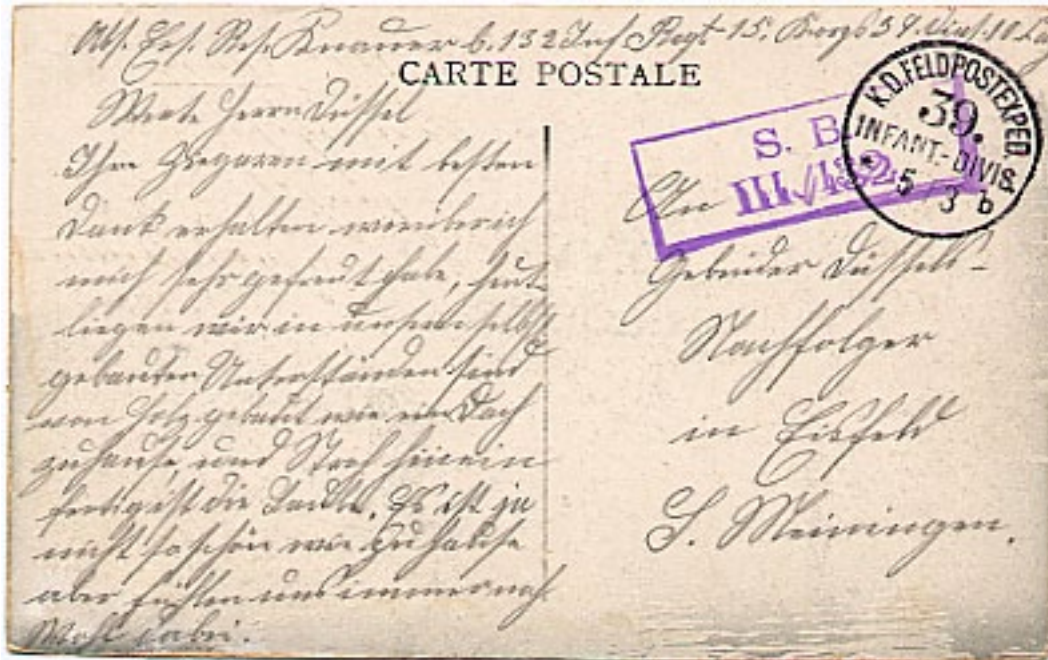 Abs. Ers. Res. Knauer b. 132 Inf. Regt. 15. Korps 39. Divis. 10
CARTE POSTALE
Werte Herrn Düssel
Ihre Zigaren mit besten
Dank erhalten worüber ich
mich sehr gefreut habe,
liegen wir in unsern selbst
gebauden Unterständen sind
von Holz gebaut wie ein Dach
zuhause und Stroh hinein
fertig ist die Laube. Es ist ja
nicht so schön wie zuhause
aber fühlen uns immer noch
Wohl dabei.
S. B.
III./132
K.D. FELDPOSTEXPED.
39.
INFANT.-DIVIS.
5 3 b
An
Gebrüder Düssels
Nachfolger
in Eisfeld
S. Meiningen.